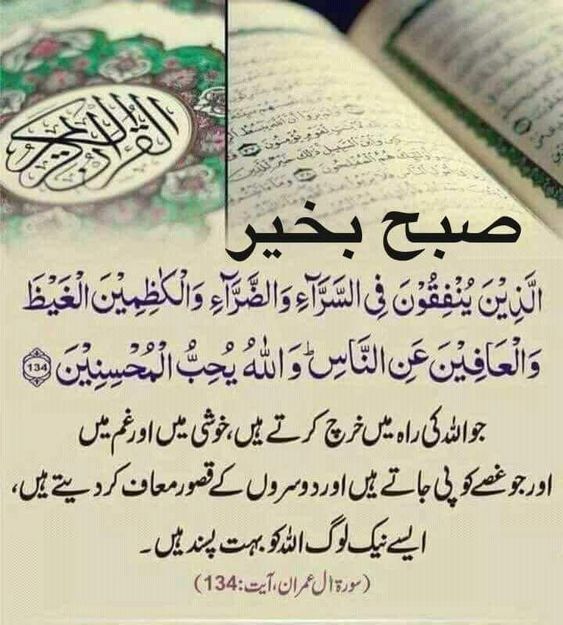 القرآن الكريم
صبح بخیر
الَّذِیْنَ یُنْفِقُوْنَ فِی السَّرَّآءِ وَالضَّرَّآءِ وَالْكٰظِمِیْنَ الْغَیْظَ
وَالْعَافِیْنَ عَنِ النَّاسِ ؕ وَاللهُ یُحِبُّ الْمُحْسِنِیْنَ ﴿134﴾
جو اللہ کی راہ میں خرچ کرتے ہیں، خوشی میں اور غم میں
اور جو غصے کو پی جاتے ہیں اور دوسروں کے قصور معاف کر دیتے ہیں،
ایسے نیک لوگ اللہ کو بہت پسند ہیں۔
(سورۃ ال عمران، آیت:134)